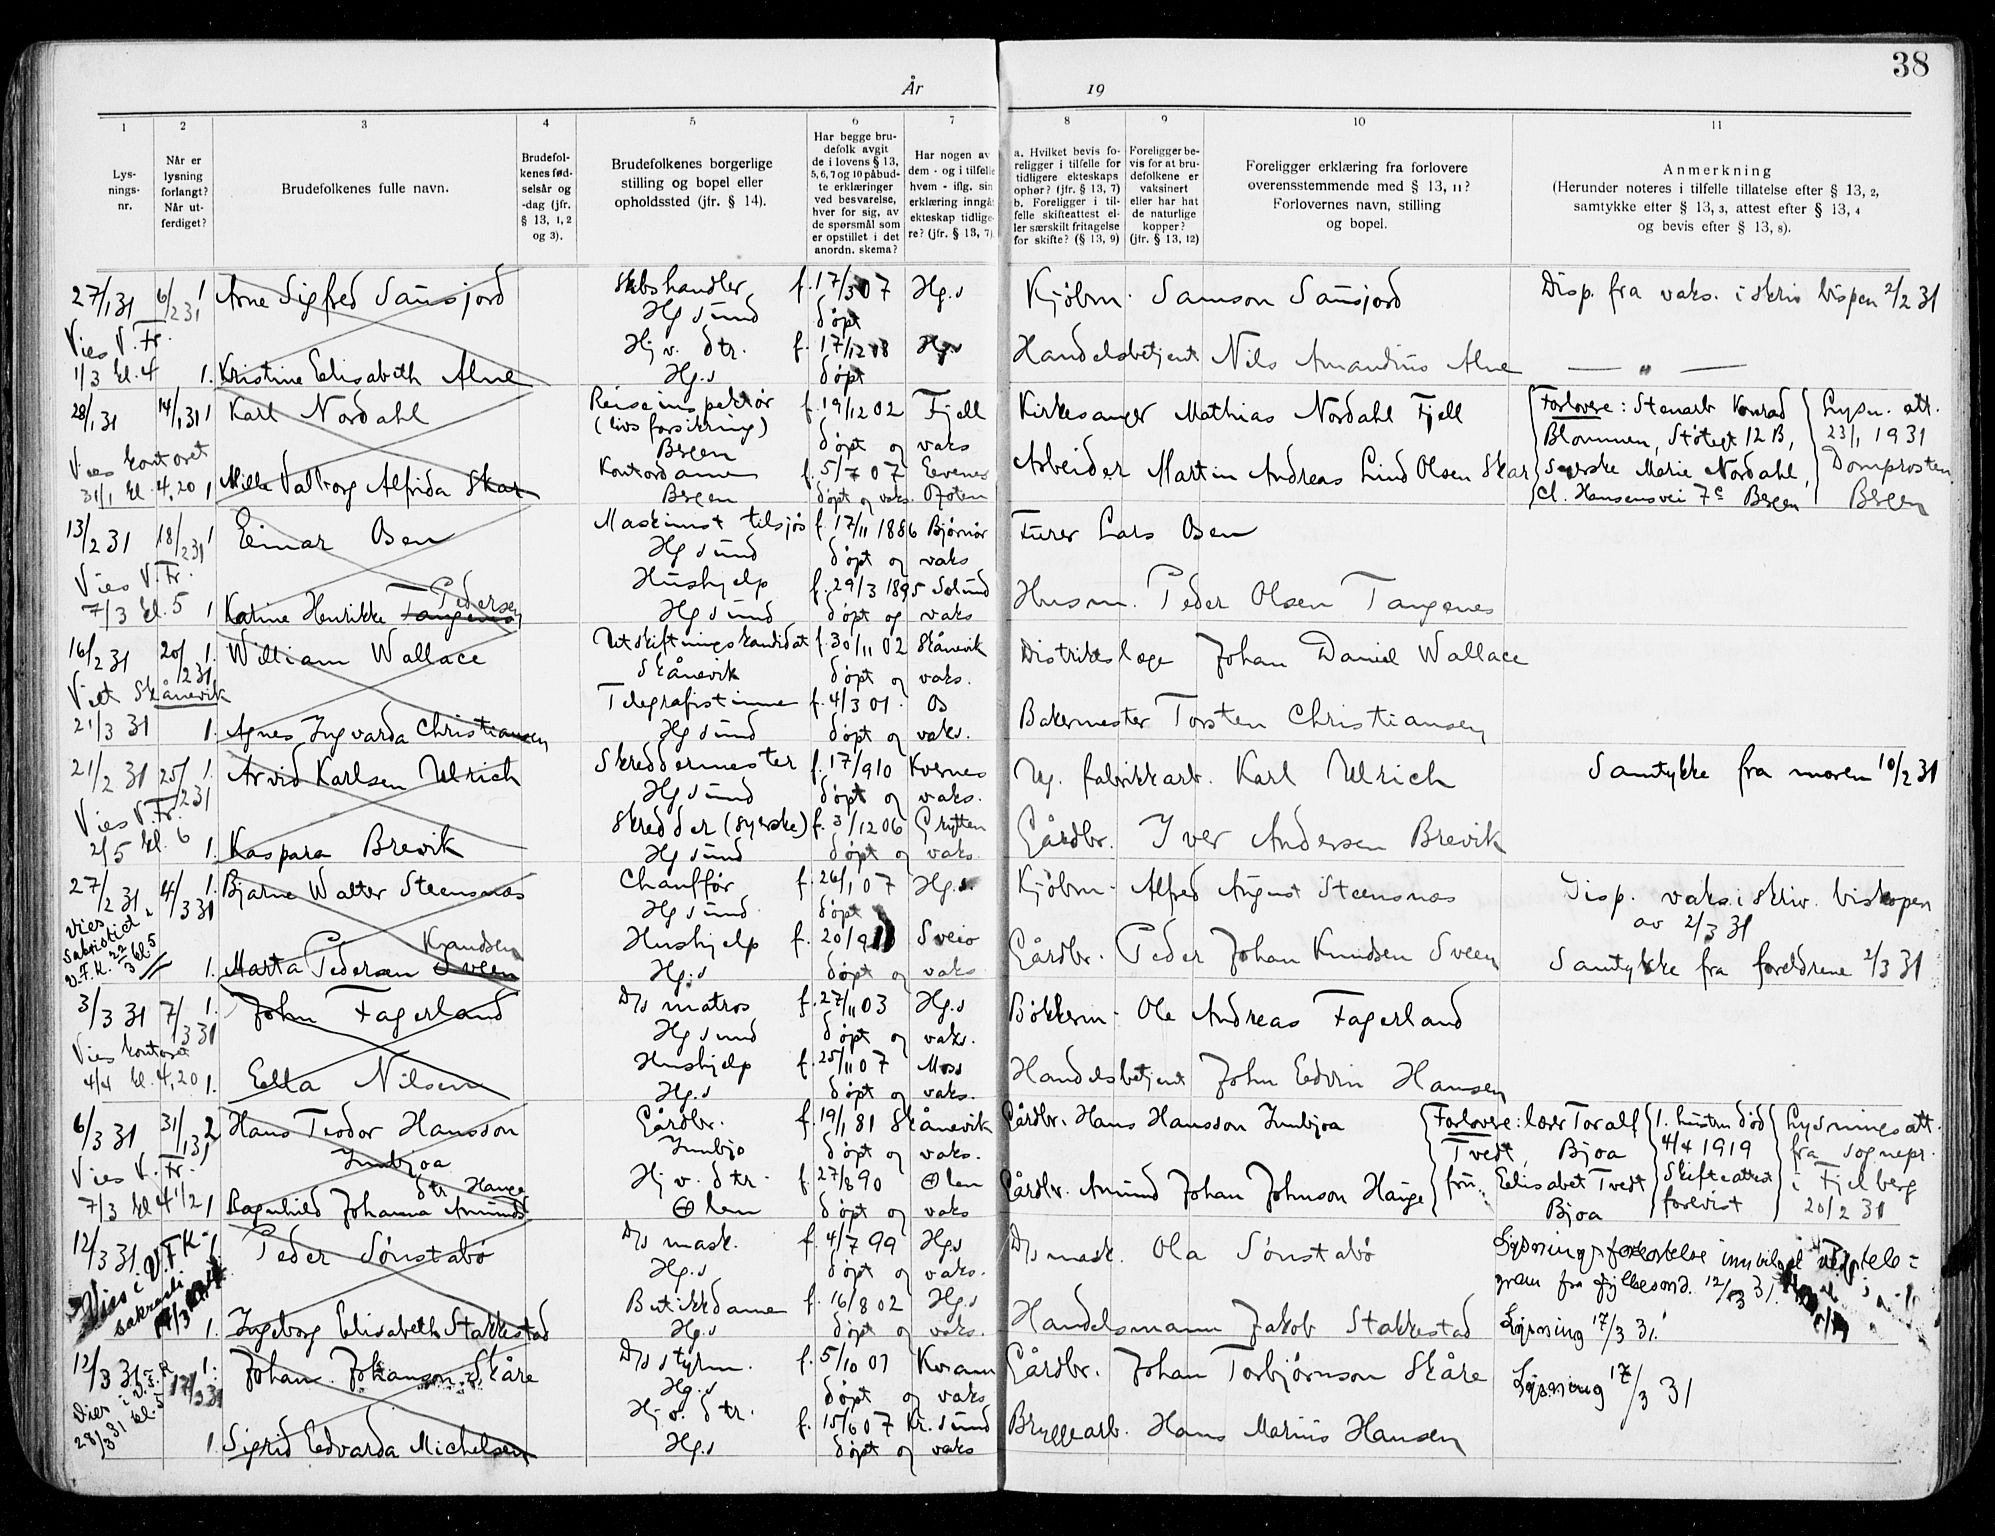 38
År
19
1
2
3
4
5
6
7
8
9
10
11
Lys-
nings-
nr.
Når er
lysning
forlangt?
Når ut-
ferdiget?
Brudefolkenes fulle navn.
Brudefol-
kenes fød-
selsår og
-dag (jfr.
§ 13, 1, 2
og 3).
Brudefolkenes borgerlige
stilling og bopel eller
opholdssted (jfr. § 14).
Har begge bru-
defolk avgit
de i lovens § 13,
5, 6, 7 og 10 påbud-
te erklæringer
ved besvarelse,
hver for sig, av
de spørsmål som
er opstillet i det
anordn. skema?
Har nogen av
dem - og i tilfelle
hvem - iflg. sin
erklæring inngå
ekteskap tidlige-
re? (jfr. § 13, 7)
a. Hvilket bevis fo-
religger i tilfelle for
tidligere ekteskaps
ophør? (jfr. § 13, 7)
b. Foreligger i til-
felle skifteattest el-
ler særskilt fritagelse
for skifte? (§ 13, 9)
Foreligger be-
vis for at bru-
defolkene er
vaksinert
eller har hat
de naturlige
kopper?
(jfr. § 13, 12)
Foreligger erklæring fra forlovere
overensstemmende med § 13, 11?
Forlovernes navn, stilling
og bopel.
Anmerkning
(Herunder noteres i tilfelle tillatelse efter § 13, 2,
samtykke efter § 13, 3, attest efter § 13, 4
og bevis efter § 13, 8).
27/1 31 6/2 31 1 Arne Sigfred Sausjord Skbshandler f. 17/3 07 Hg.s Kjøbm. Samson Sausjord Disp. fra vaks. i skriv bispen 2/2 31
Vies V. Fr. Hgsund døpt
Hj v. dtr. f. 17/12 08 Hg.s Handelsbetjent Nils Amandius Alne — " —
1/3 kl. 4 1. Kristine Elisabeth Alne Hg.s døpt
28/1 31 14/1 31 1 Karl Nordahl Reiseinspektør f. 19/12 02 Fjell Kirkesanger Mathias Nordahl Fjell Forlovere: Stenarb Konrad Lysn. att.
(livsforsikring) Bergen døpt og vaks Blommen, Støtegt 12 B, 23/1 1931
Vies kontoret Kontordame f. 5/7 07 Evenes Arbeider Martin Andreas Lind Olsen Skar Syerske Marie Nordahl, Domprosten
31/1 kl. 4,20 1 Mille Valborg Alfrida Skar Bergen døpt og vaks. Ofoten Cl. Hansensvei 7c Bergen Bergen
13/2 31 18/2 31 1 Einar Osen Maskinist tilsjøs f. 17/11 1886 Bjørnør Furer Lars Osen
Vies V. Fr. Hgsund døpt og vaks
Pedersen Hushjelp f. 29/3 1895 Solund Husm. Peder Olsen Tangenes
7/3 kl. 5 1 Katine Henrikke Tangenes Hgsund døpt og vaks
16/2 31 20/2 31 1. William Wallace Utskiftningskandidat f. 30/11 02 Skånevik Distriktslæge Johan Daniel Wallace
Viet Skånevik Skånevik døpt og vaks.
Telegrafistinne f. 4/3 01. Os Bakermester Torsten Christiansen
21/3 31 1. Agnes Ingvarda Christiansen Hgsund døpt og vaks.
21/2 31 25/2 31 1. Arvid Karlsen Ulrich Skreddermester f. 17/9 10 Kvernes Ug. fabrikkarb. Karl Ulrich Samtykke fra moren 10/2 31
Vies V. Fr. Hgsund døpt og vaks.
Skredder (syerske) f. 3/12 06 Grytten Gårdbr. Iver Andersen Brevik
2/5 kl. 6 1. Kaspara Brevik Hgsund døpt og vaks.
27/2 31 4/3 31 1. Bjarne Walter Steensnæs Chauffør f. 26/1 07 Hg.s. Kjøbm. Alfred August Steensnæs Disp. vaks. i skriv. biskopen
Vies Sakristiet Hgsund døpt av 2/3 31
V.F.K. 22/3 kl. 5 Knudsen Hushjelp f. 20/9 Sveio Gårdbr. Peder Johan Knudsen Sveen Samtykke fra foreldrene 2/3 31
1. Marta Pedersen Sveen Hg.s døpt og vaks
3/3 31 7/3 31 1. John Fagerland D/s matros f. 27/11 03 Hg.s Bøkkerm. Ole Andreas Fagerland
Vies kontoret Hgsund døpt og vaks.
Hushjelp f. 25/11 07 Moss Handelsbetjent John Edvin Hansen
4/4 kl. 4,20 1. Ella Nilsen Hg.s døpt og vaks.
6/3 31 31/1 31 2 Hans Teodor Hansson Gårdbr. f. 19/1 81 Skånevik Gårdbr. Hans Hansson Innbjoa Forlovere: lærer Toralf 1. hustru død Lysningsatt.
Vies V. Fr. Innbjoa Innbjo døpt og vaks. Tvedt, Bjoa 4/4 1919 fra sognepr.
dtr Hauge Hj v. dtr. f. 27/8 90 Ølen Gårdbr. Amund Johan Johnson Hauge fru Elisabet Tvedt Skifteattest i Fjelberg
7/3 kl 4 1/2 1 Ragnhild Johanna Amunds Ølen døpt og vaks Bjoa forevist 20/2 31
12/3 31 Peder Sønstabø D/s mask. f. 4/7 99 Hg.s D/s mask. Ola Sønstabø Lysningsforkortelse innvilget ved tele-
Vies i V.F.K. sakristi Hg.s døpt og vaks. gram fra fylkesmd. 12/3 31.
Butikkdame f. 16/8 02 Hg.s Handelsmann Jakob Stakkestad Lysning 17/3 31.
1. Ingeborg Elisabeth Stakkestad Hg.s døpt og vaks.
12/3 31 17/3 31 1. Johan Johanson Skåre D/s styrm. f. 5/10 01 Kvam Gårdbr. Johan Torbjørnson Skåre Lysning 17/3 31
Vies i V.F.K. Hg.s døpt og vaks
28/3 31 kl. 5 Hj v. dtr. f. 15/6 07 Kr. sund Bryggearb. Hans Marius Hansen
1. Sigrid Edvarda Michelsen Hg.s døpt og vaks